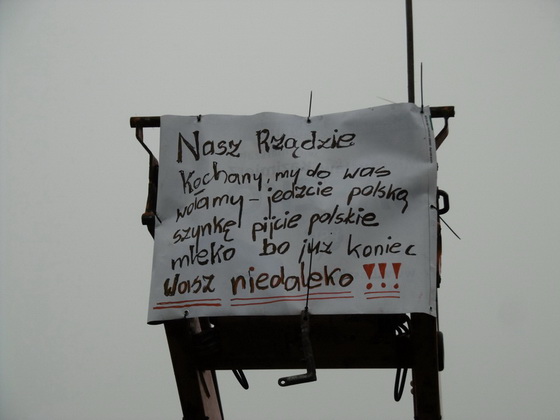 Nasz Rządzie
Kochany, my do was
wołamy - jedzcie polską
szynkę pijcie polskie
mleko bo już koniec
Wasz niedaleko !!!